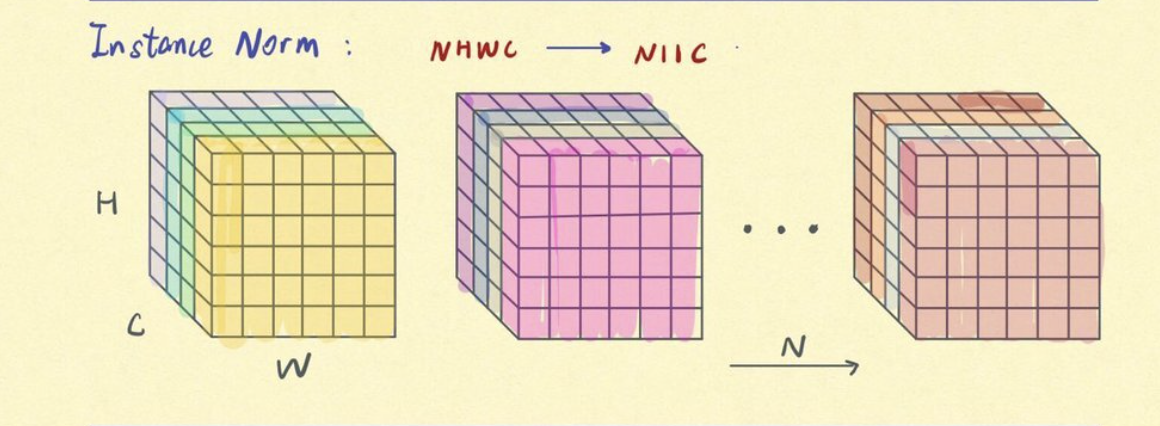 Instance Norm : NHWC → N11C
H
C
W
N